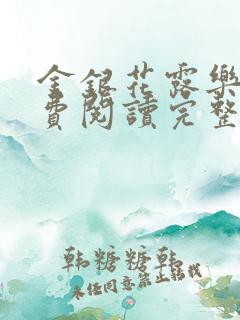 金銀花露樂
費閱讀完整
韩糖糖韩
未经同意禁止转载